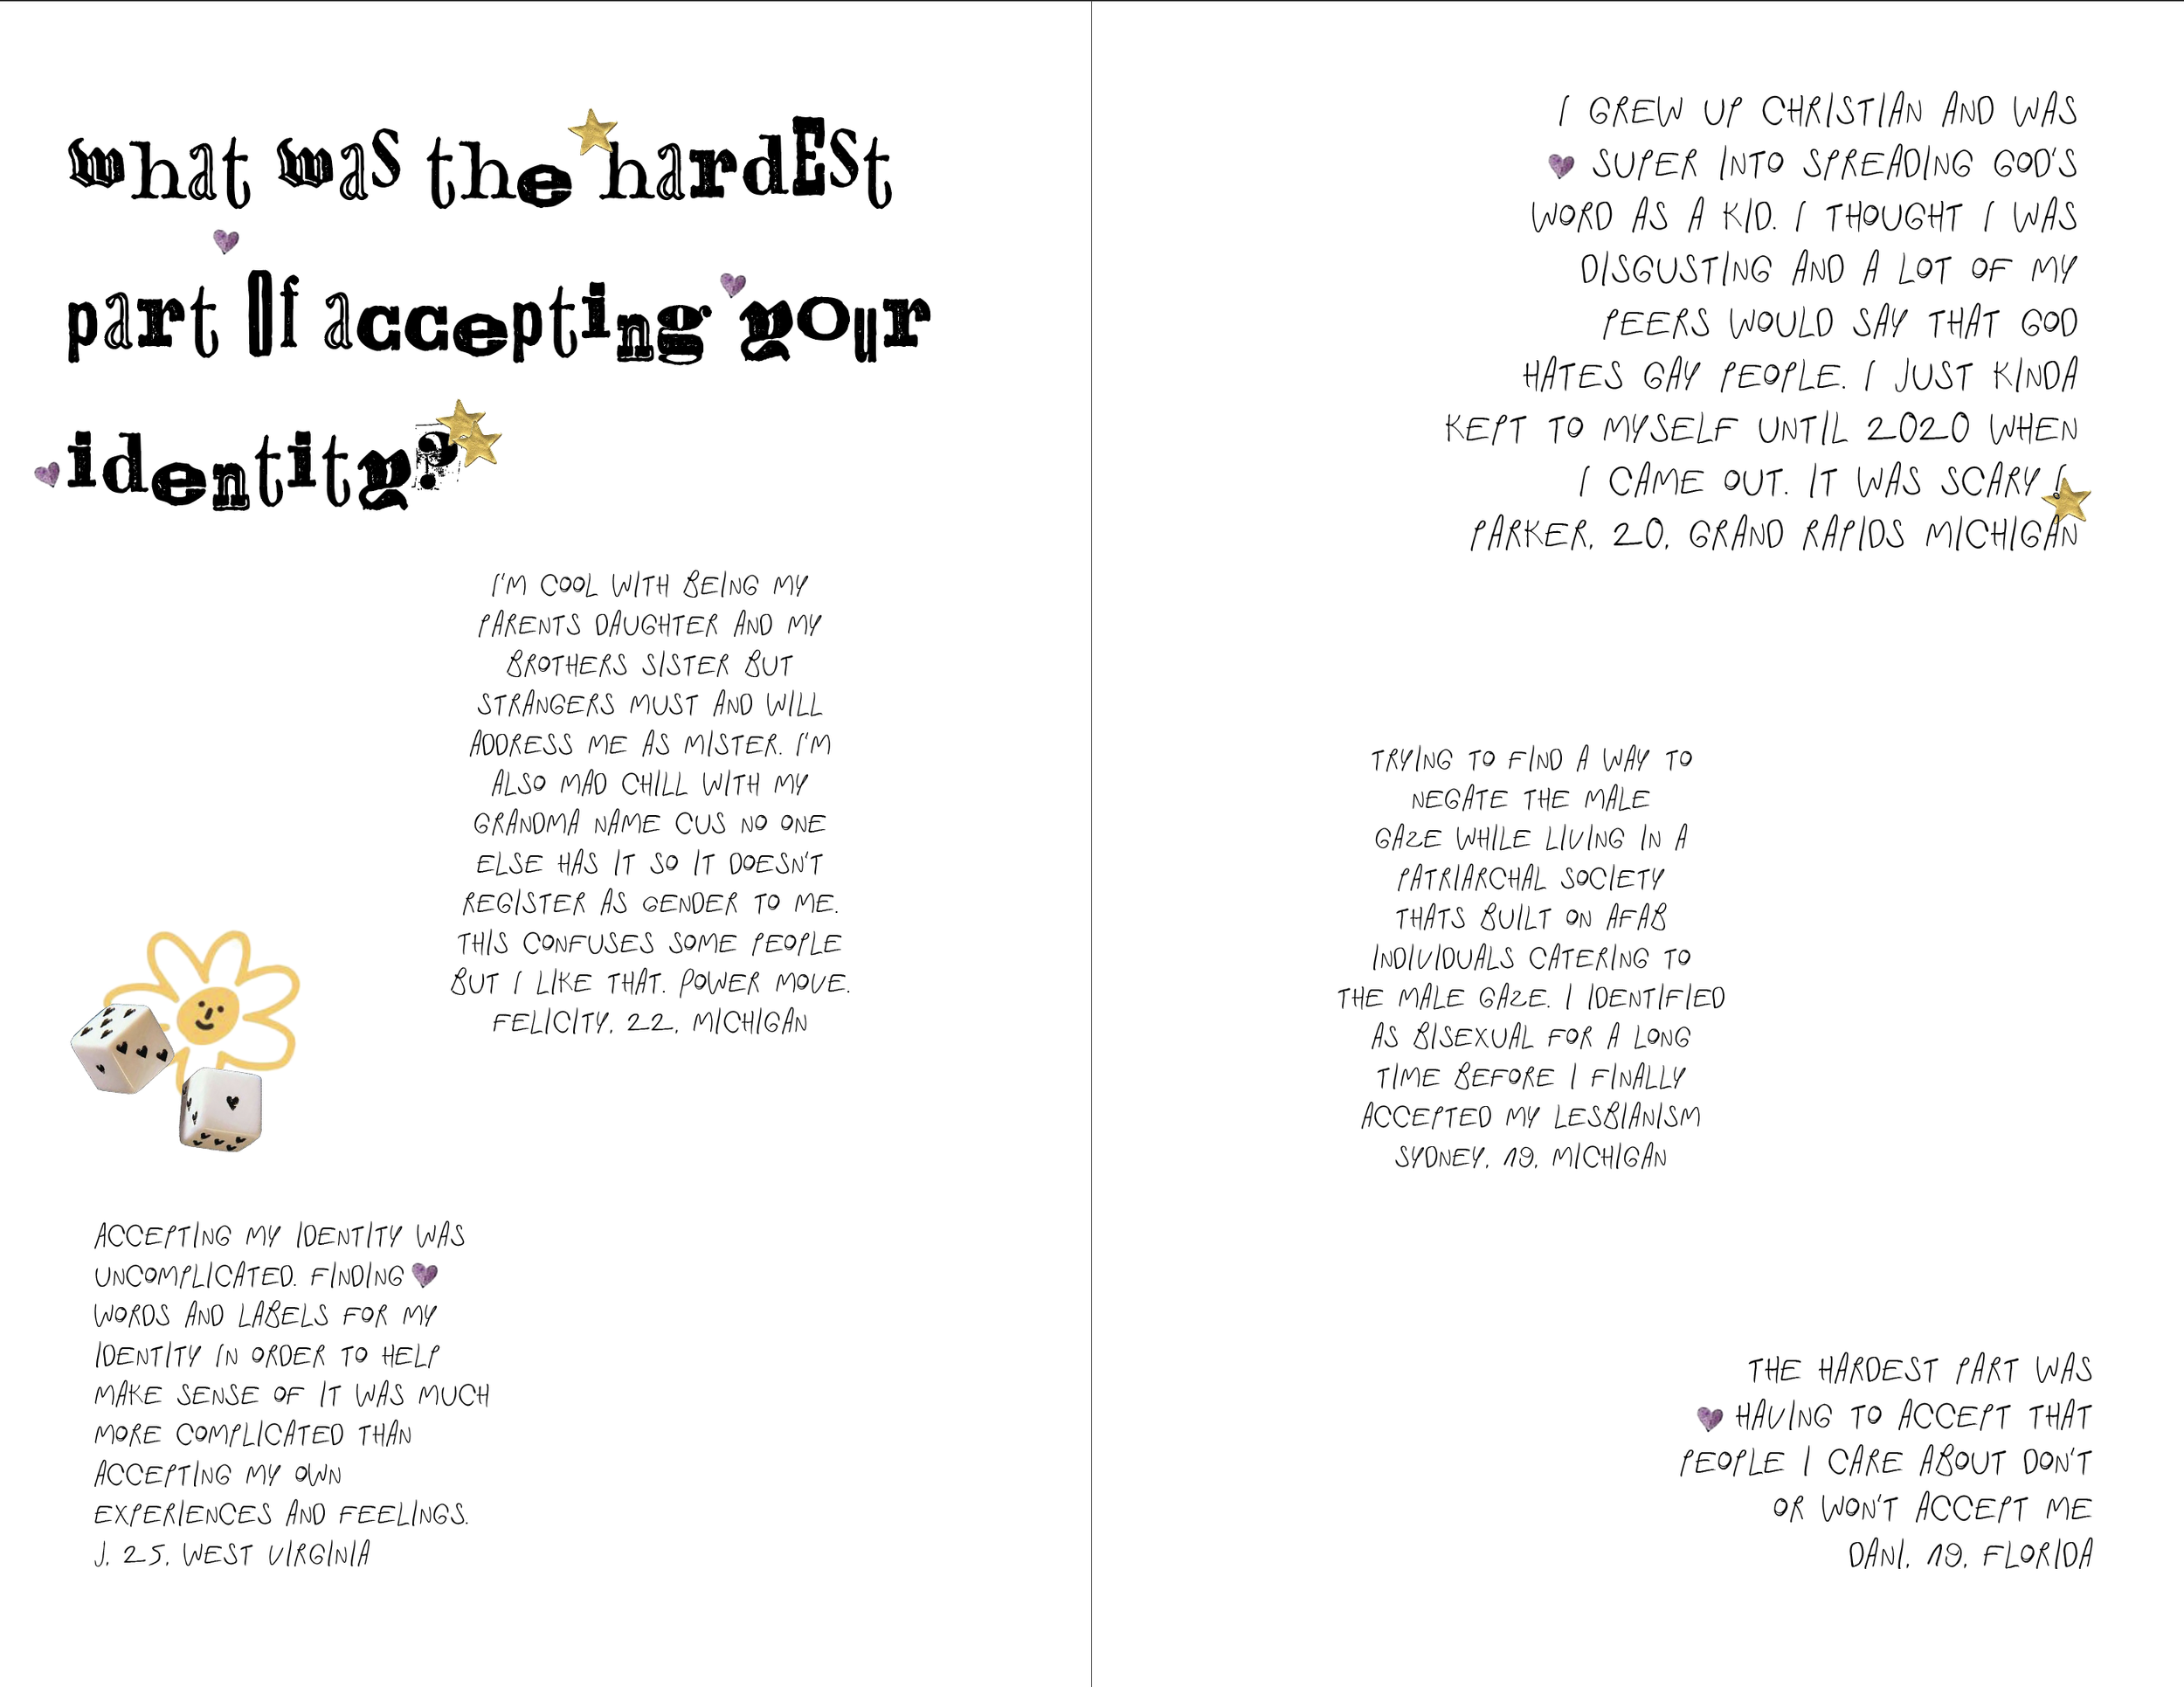 what was the hardEst
part Of accepting your
identity?
I'M COOL WITH BEING MY
PARENTS DAUGHTER AND MY
BROTHERS SISTER BUT
STRANGERS MUST AND WILL
ADDRESS ME AS MISTER. I'M
ALSO MAD CHILL WITH MY
GRANDMA NAME CUS NO ONE
ELSE HAS IT SO IT DOESN'T
REGISTER AS GENDER TO ME.
THIS CONFUSES SOME PEOPLE
BUT I LIKE THAT. POWER MOVE.
FELICITY, 22, MICHIGAN
ACCEPTING MY IDENTITY WAS
UNCOMPLICATED. FINDING
WORDS AND LABELS FOR MY
IDENTITY IN ORDER TO HELP
MAKE SENSE OF IT WAS MUCH
MORE COMPLICATED THAN
ACCEPTING MY OWN
EXPERIENCES AND FEELINGS.
J, 25, WEST VIRGINIA
I GREW UP CHRISTIAN AND WAS
SUPER INTO SPREADING GOD'S
WORD AS A KID. I THOUGHT I WAS
DISGUSTING AND A LOT OF MY
PEERS WOULD SAY THAT GOD
HATES GAY PEOPLE. I JUST KINDA
KEPT TO MYSELF UNTIL 2020 WHEN
I CAME OUT. IT WAS SCARY !
PARKER, 20, GRAND RAPIDS MICHIGAN
TRYING TO FIND A WAY TO
NEGATE THE MALE
GAZE WHILE LIVING IN A
PATRIARCHAL SOCIETY
THATS BUILT ON AFAB
INDIVIDUALS CATERING TO
THE MALE GAZE. I IDENTIFIED
AS BISEXUAL FOR A LONG
TIME BEFORE I FINALLY
ACCEPTED MY LESBIANISM
SYDNEY, 19, MICHIGAN
THE HARDEST PART WAS
HAVING TO ACCEPT THAT
PEOPLE I CARE ABOUT DON'T
OR WON'T ACCEPT ME
DANI, 19, FLORIDA